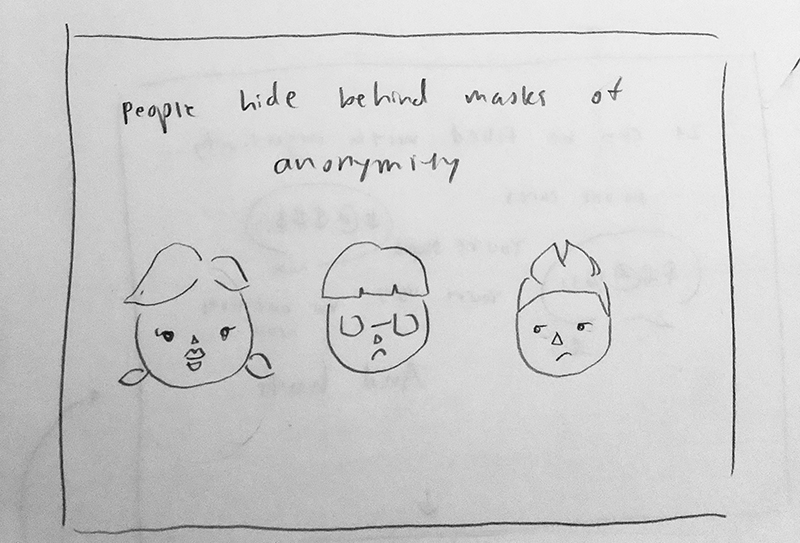 people hide behind masks of
anonymity